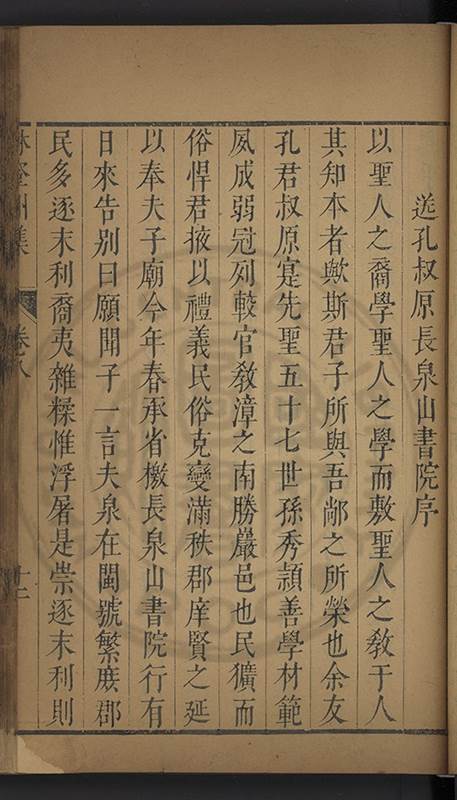 送孔叔原長泉山書院序
以聖人之裔學聖人之學而敷聖人之教于人
其知本者歟斯君子所與吾鄰之所榮也余友
孔君叔原寔先聖五十七世孫秀頴善學材範
夙成弱冠列較官教漳之南勝巖邑也民獷而
俗悍君掖以禮義民俗克變滿秩郡庠賢之延
以奉夫子廟今年春承省檄長泉山書院行有
日來告别曰願聞子一言夫泉在閩號繁庻郡
民多逐末利裔夷雜糅惟浮屠是崇逐末利則
林登州集
卷八
十二